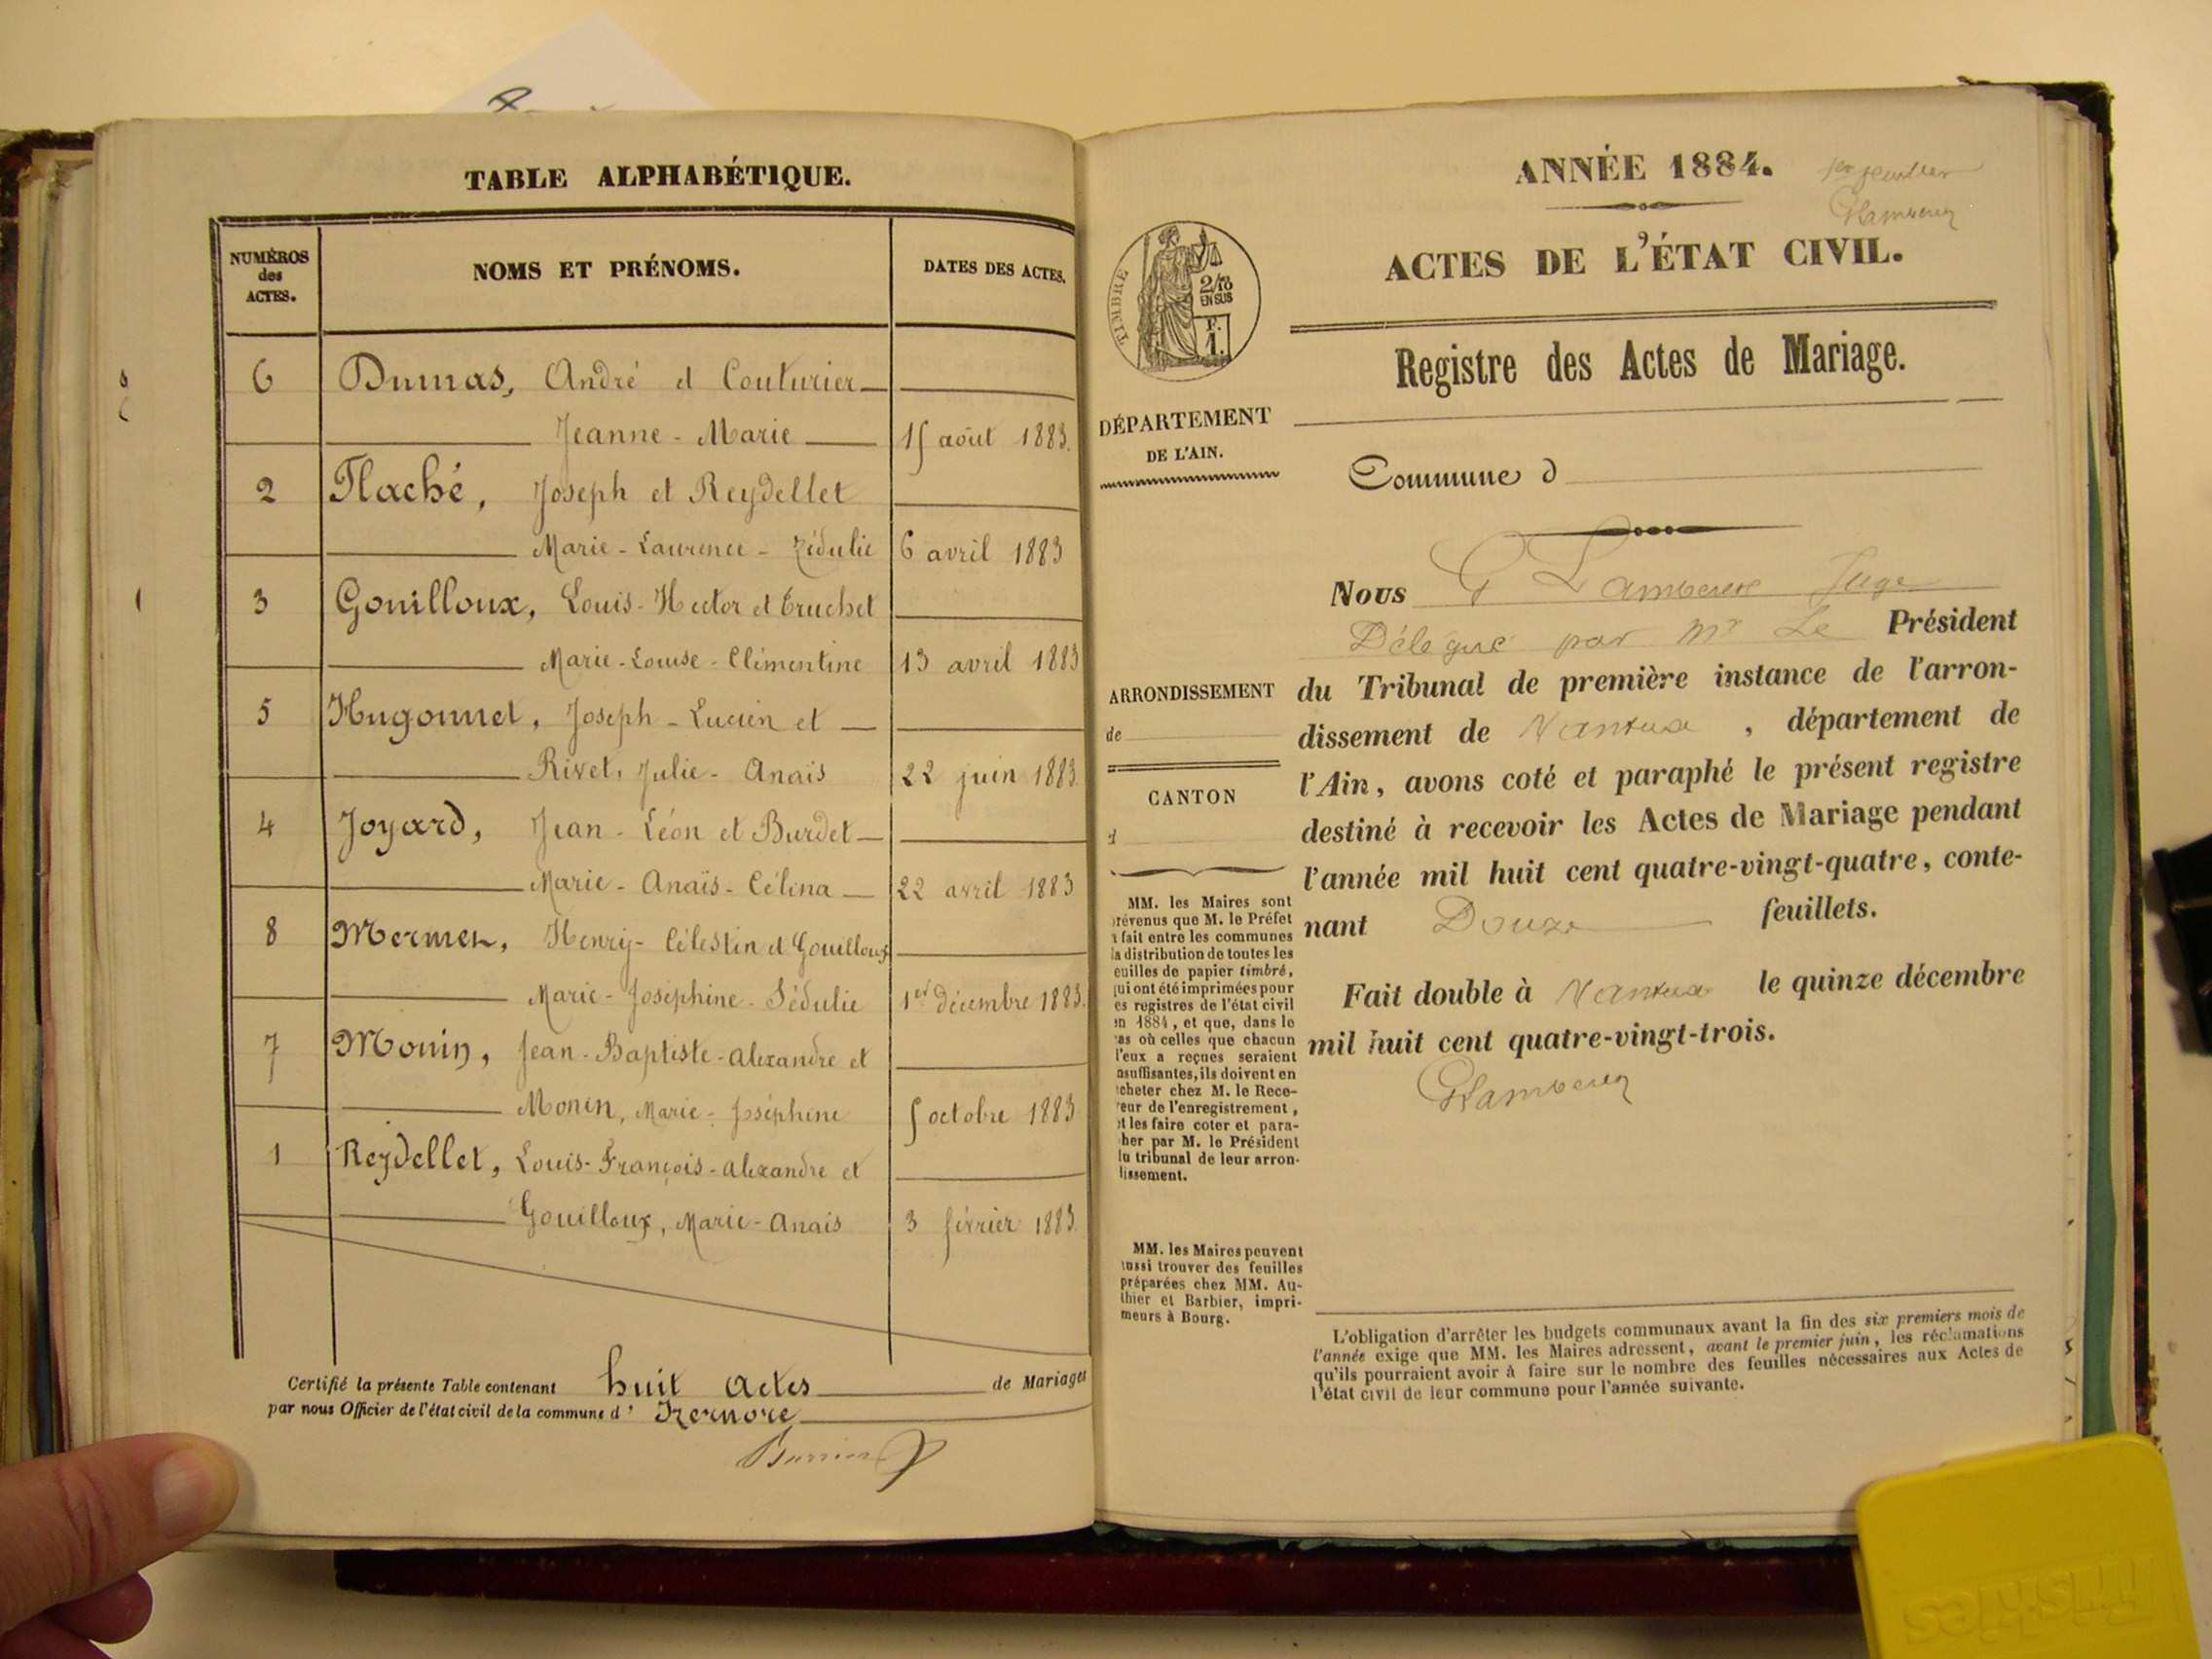 TABLE ALPHABÉTIQUE.
NUMÉROS des ACTES.
NOMS ET PRÉNOMS.
DATES DES ACTES.
6 Dumas, André et Couturier
Jeanne - Marie 15 août 1883.
2 Flaché, Joseph et Reydellet
Marie - Laurence - Zédulie 6 avril 1883
3 Gouilloux, Louis - Hector et Truchet
Marie - Louise - Clémentine 13 avril 1883
5 Hugonnet, Joseph - Lucien et
Rivet, Julie - Anaïs 22 juin 1883.
4 Joyard, Jean - Léon et Burdet
Marie - Anaïs - Célina 22 avril 1883
8 Mermet, Henry - Célestin et Gouilloux
Marie - Joséphine - Sédulie 1er décembre 1883.
7 Monin, Jean - Baptiste - Alexandre et
Monin, Marie - Joséphine 5 octobre 1883
1 Reydellet, Louis - François - Alexandre et
Gouilloux, Marie - Anaïs 3 février 1883.
Certifié la présente Table contenant huit actes de Mariages
par nous Officier de l'état civil de la commune d' Izernore
ANNÉE 1884.
1er feuillet
ACTES DE L'ÉTAT CIVIL.
TIMBRE
2/10
EN SUS
F.
1.
Registre des Actes de Mariage.
DÉPARTEMENT
DE L'AIN.
Commune d
Nous Juge
Délégué par Mr Le Président
ARRONDISSEMENT
de
CANTON
d
du Tribunal de première instance de l'arron-
dissement de Nantua , département de
l'Ain, avons coté et paraphé le présent registre
destiné à recevoir les Actes de Mariage pendant
l'année mil huit cent quatre-vingt-quatre, conte-
nant Douze feuillets.
Fait double à Nantua le quinze décembre
mil huit cent quatre-vingt-trois.
MM. les Maires sont
prévenus que M. le Préfet
a fait entre les communes
la distribution de toutes les
feuilles de papier timbré,
qui ont été imprimées pour
les registres de l'état civil
en 1884, et que, dans le
cas où celles que chacun
d'eux a reçues seraient
insuffisantes, ils doivent en
acheter chez M. le Rece-
veur de l'enregistrement,
et les faire coter et para-
pher par M. le Président
du tribunal de leur arron-
dissement.
MM. les Maires peuvent
aussi trouver des feuilles
préparées chez MM. Au-
thier et Barbier, impri-
meurs à Bourg.
L'obligation d'arrêter les budgets communaux avant la fin des six premiers mois de
l'année exige que MM. les Maires adressent, avant le premier juin, les réclamations
qu'ils pourraient avoir à faire sur le nombre des feuilles nécessaires aux Actes de
l'état civil de leur commune pour l'année suivante.